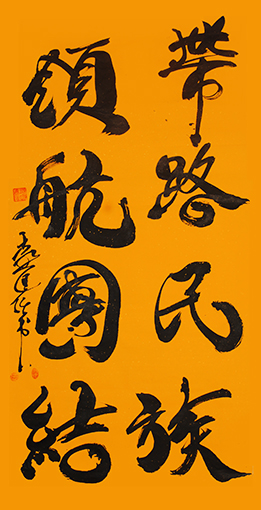 帶路民族
領航團結